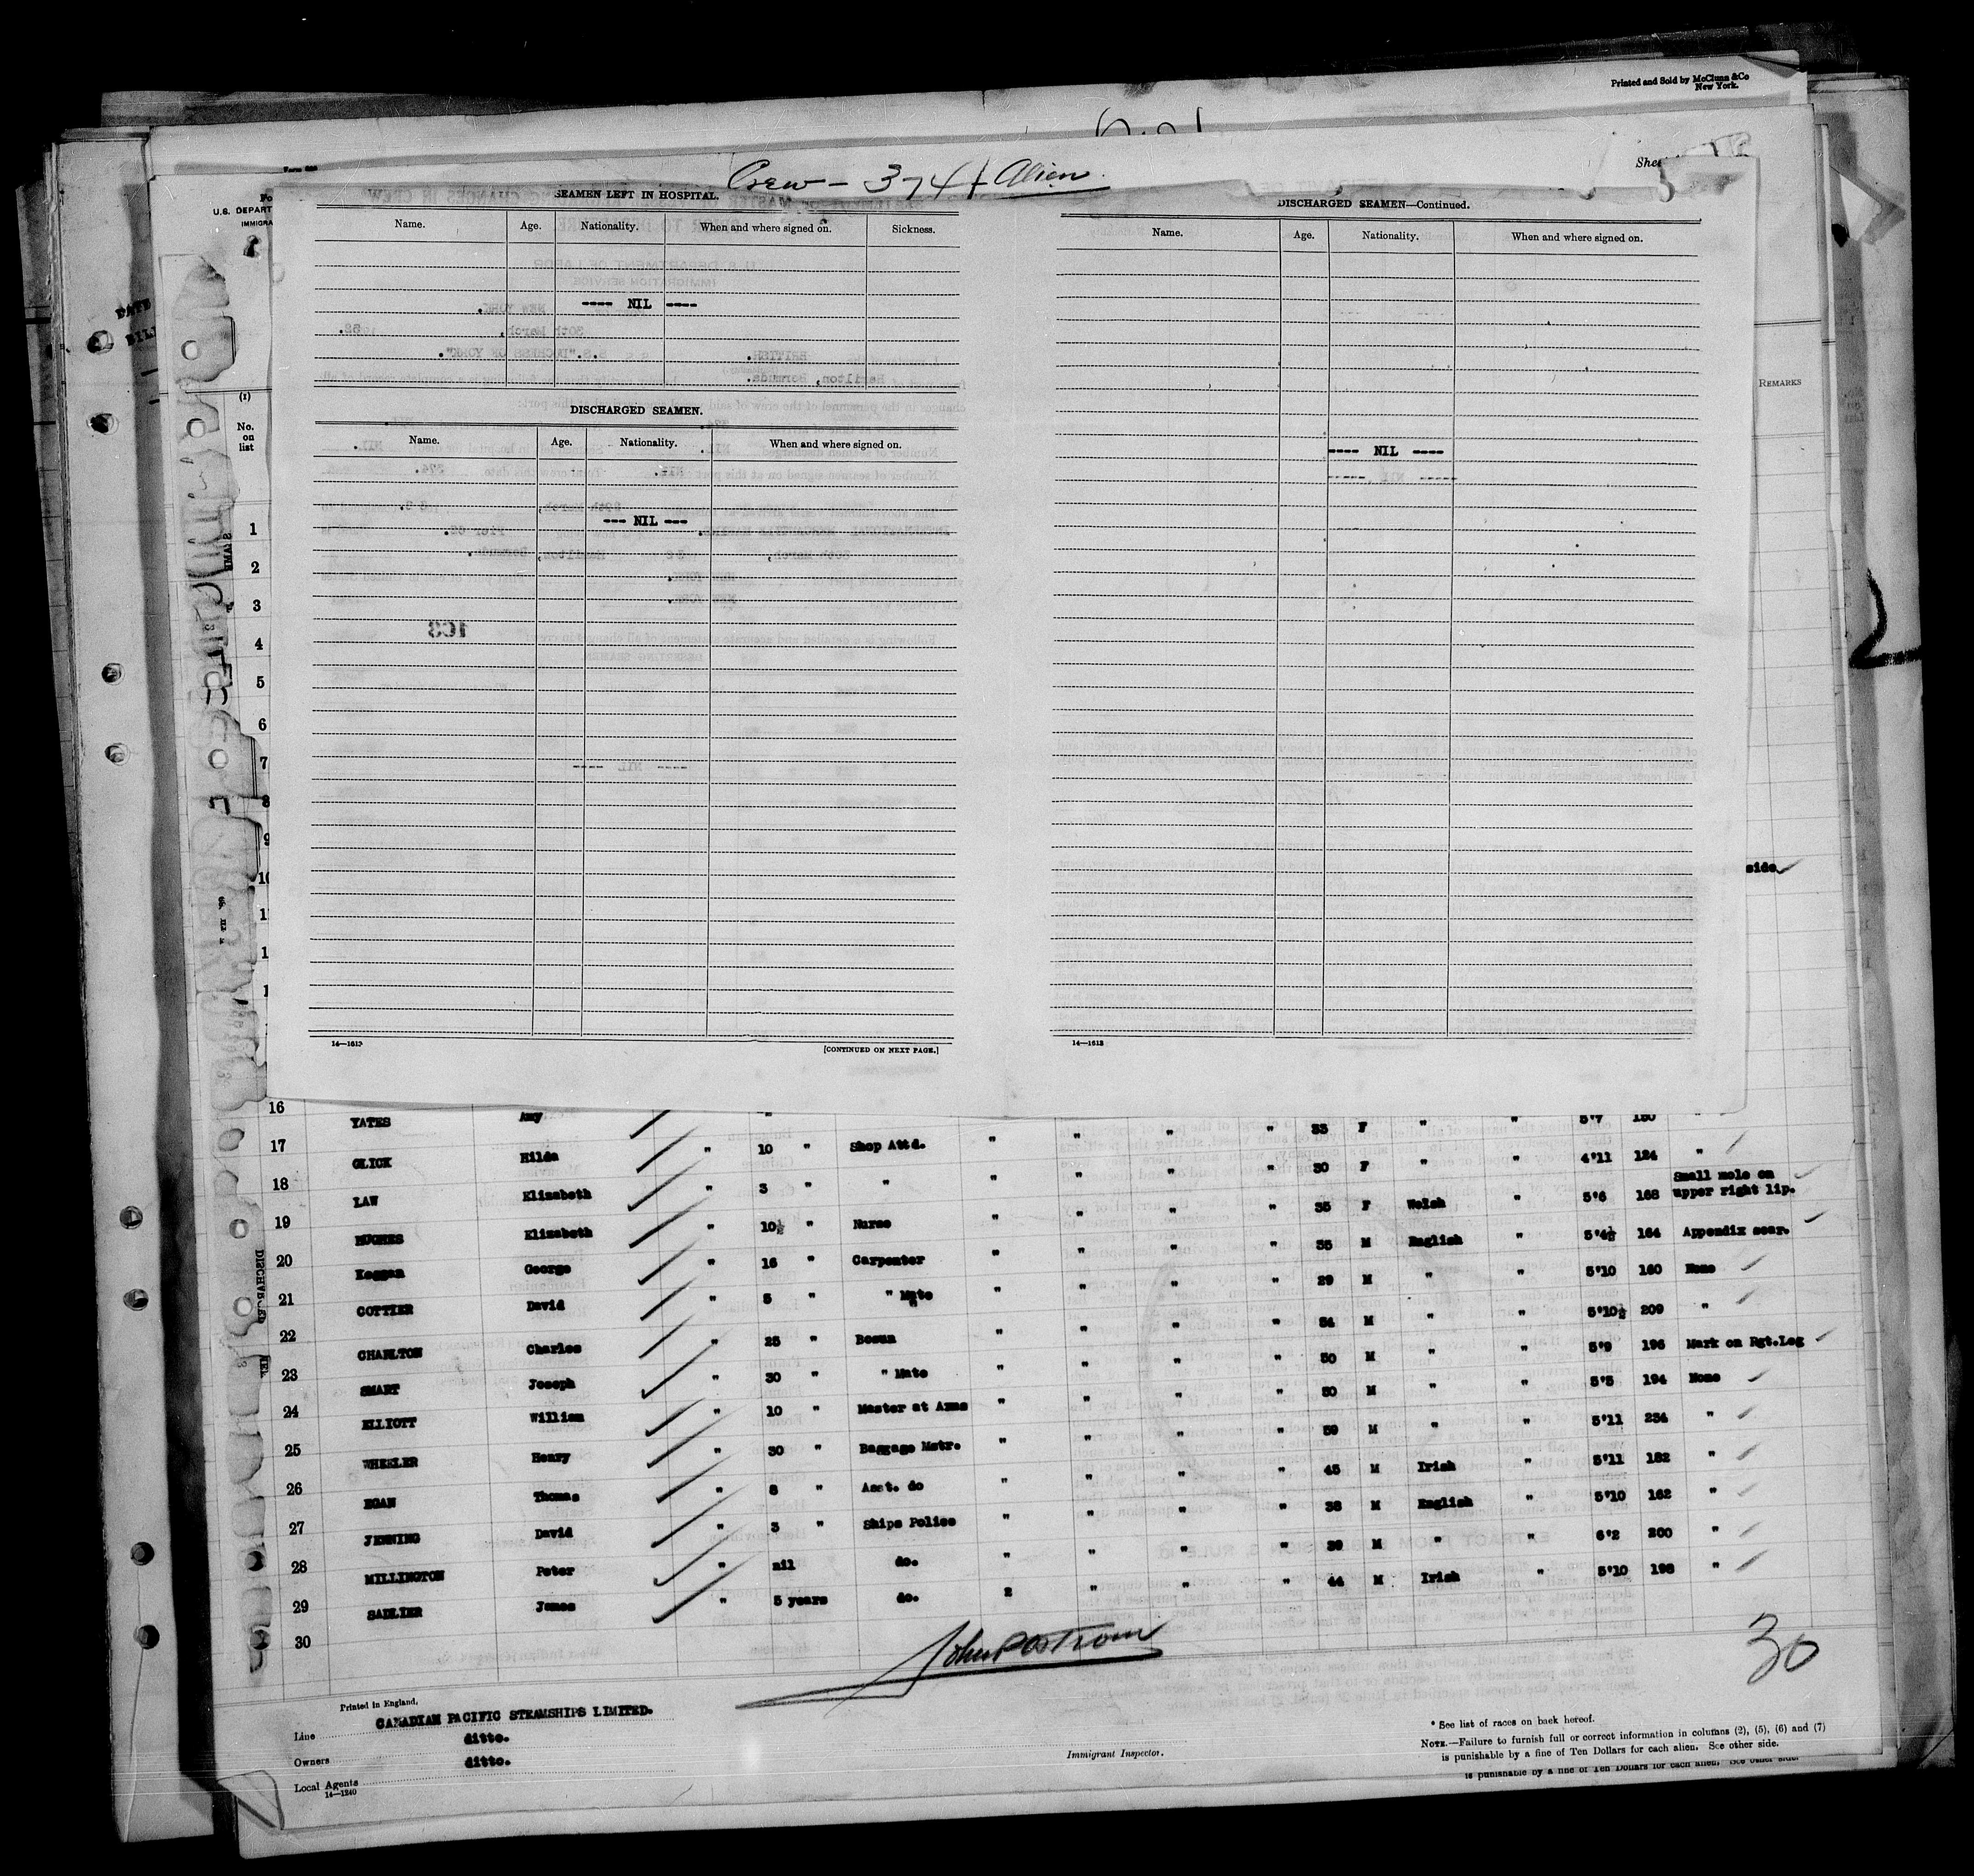 Printed and Sold by McClunn &Co
New York.
Crew - 374 Alien
SEAMEN LEFT IN HOSPITAL.
Name. Age. Nationality. When and where signed on. Sickness.
---- NIL ----
DISCHARGED SEAMEN.
Name. Age. Nationality. When and where signed on.
--- NIL ---
14—1613
[CONTINUED ON NEXT PAGE.]
DISCHARGED SEAMEN—Continued.
Name. Age. Nationality. When and where signed on.
---- NIL ----
14—1613
U.S. DEPART
IMMIGRA
(1)
No.
on
list
REMARKS
1
2
3
4
5
6
7
8
9
10
side
16 YATES Amy 33 F " " 5'7 150 "
17 GLICK Hilda " 10 " Shop Attd. " " " " 30 F " " 4'11 124 "
18 LAW Elizabeth " 3 " " " " " " 35 F Welsh " 5'6 168 Small mole on upper right lip.
19 HUGHES Elizabeth " 10½ " Nurse " " " " 35 M English " 5'4½ 164 Appendix scar.
20 Keggan George " 16 " Carpenter " " " " 29 M " " 5'10 160 None
21 COTTIER David " 5 " " Mate " " " " 54 M " " 5'10½ 209 "
22 CHARLTON Charles " 25 " Bosun " " " " 50 M " " 5'9 196 Mark on Rgt.Leg
23 SMART Joseph " 30 " " Mate " " " " 50 M " " 5'5 194 None
24 ELLIOTT William " 10 " Master at Arms " " " " 59 M " " 5'11 234 "
25 WHEELER Henry " 30 " Baggage Mstr. " " " " 45 M Irish " 5'11 182 "
26 EGAN Thomas " 8 " Asst. do " " " " 38 M English " 5'10 162 "
27 JENNING David " 3 " Ships Police " " " " 39 M " " 6'2 200 "
28 MILLINGTON Peter " nil do. " " " " 44 M Irish " 5'10 198 "
29 SADLIER James " 5 years do. 2 " " "
30
30
Printed in England,
Line CANADIAN PACIFIC STEAMSHIPS LIMITED.
Owners ditto.
Local Agents ditto.
14—1240
Immigrant Inspector.
* See list of races on back hereof.
NOTE.—Failure to furnish full or correct information in columns (2), (5), (6) and (7)
is punishable by a fine of Ten Dollars for each alien. See other side.
is punishable by a fine of Ten Dollars for each alien. See other side.